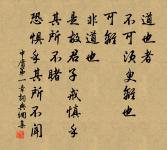 道也者
不可須臾離也
可離
非道也
是故君子戒慎乎
其所不睹
恐懼乎其所不聞
中庸第一章詞典網集